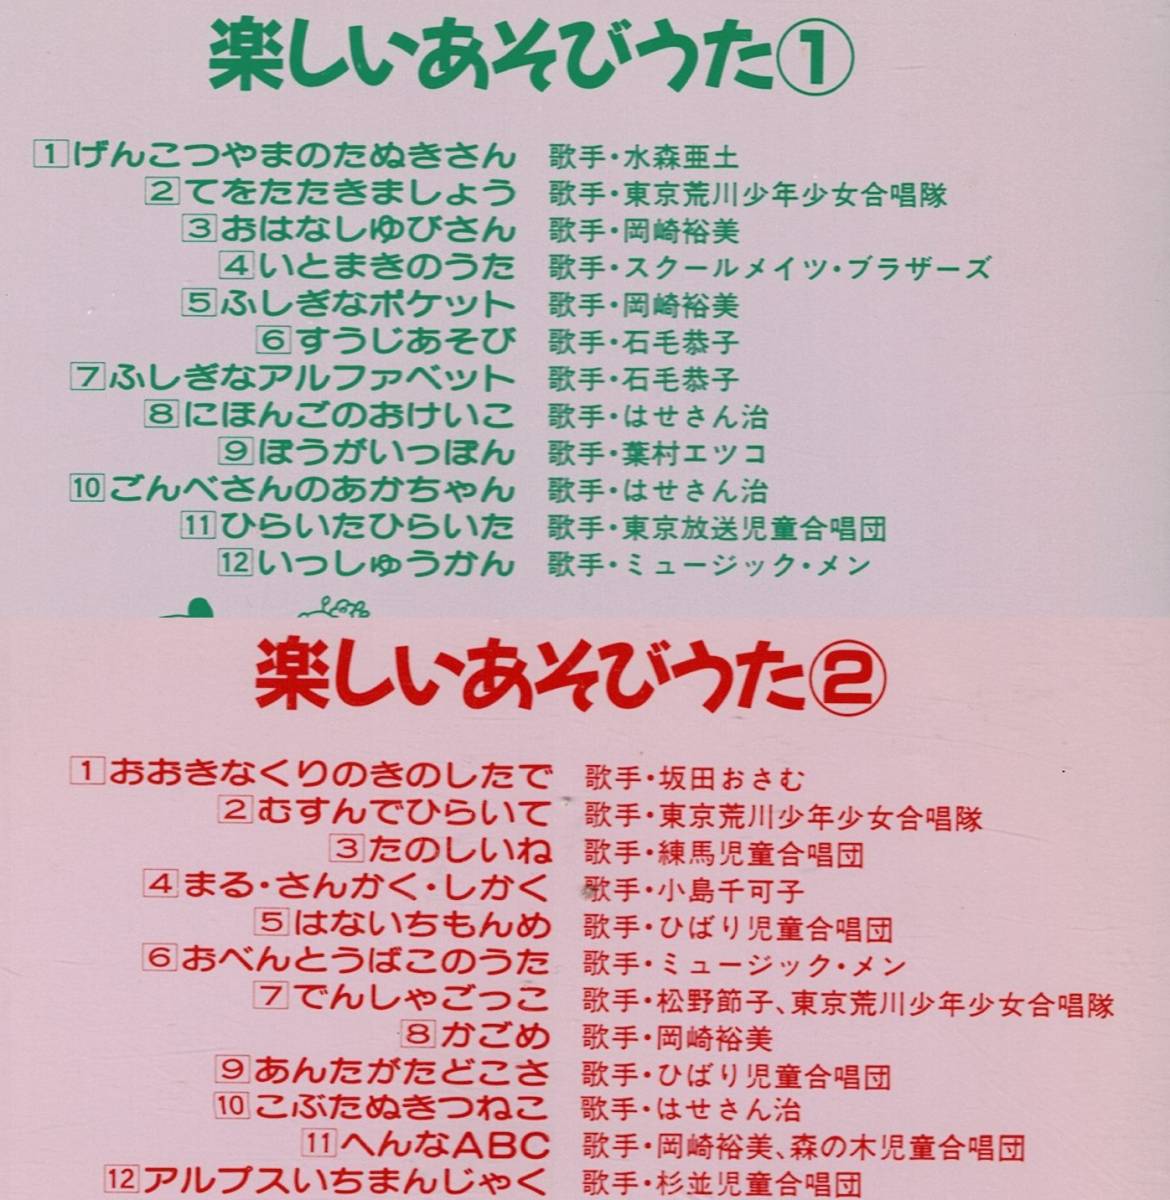 楽しいあそびうた①
1げんこつやまのたぬきさん 歌手・水森亜土
2てをたたきましょう 歌手・東京荒川少年少女合唱隊
3おはなしゆびさん 歌手・岡崎裕美
4いとまきのうた 歌手・スクールメイツ・ブラザーズ
5ふしぎなポケット 歌手・岡崎裕美
6すうじあそび 歌手・石毛恭子
7ふしぎなアルファベット 歌手・石毛恭子
8にほんごのおけいこ 歌手・はせさん治
9ぼうがいっぽん 歌手・葉村エツコ
10ごんべさんのあかちゃん 歌手・はせさん治
11ひらいたひらいた 歌手・東京放送児童合唱団
12いっしゅうかん 歌手・ミュージック・メン
楽しいあそびうた②
1おおきなくりのきのしたで 歌手・坂田おさむ
2むすんでひらいて 歌手・東京荒川少年少女合唱隊
3たのしいね 歌手・練馬児童合唱団
4まる・さんかく・しかく 歌手・小島千可子
5はないちもんめ 歌手・ひばり児童合唱団
6おべんとうばこのうた 歌手・ミュージック・メン
7でんしゃごっこ 歌手・松野節子、東京荒川少年少女合唱隊
8かごめ 歌手・岡崎裕美
9あんたがたどこさ 歌手・ひばり児童合唱団
10こぶたぬきつねこ 歌手・はせさん治
11へんなABC 歌手・岡崎裕美、森の木児童合唱団
12アルプスいちまんじゃく 歌手・杉並児童合唱団